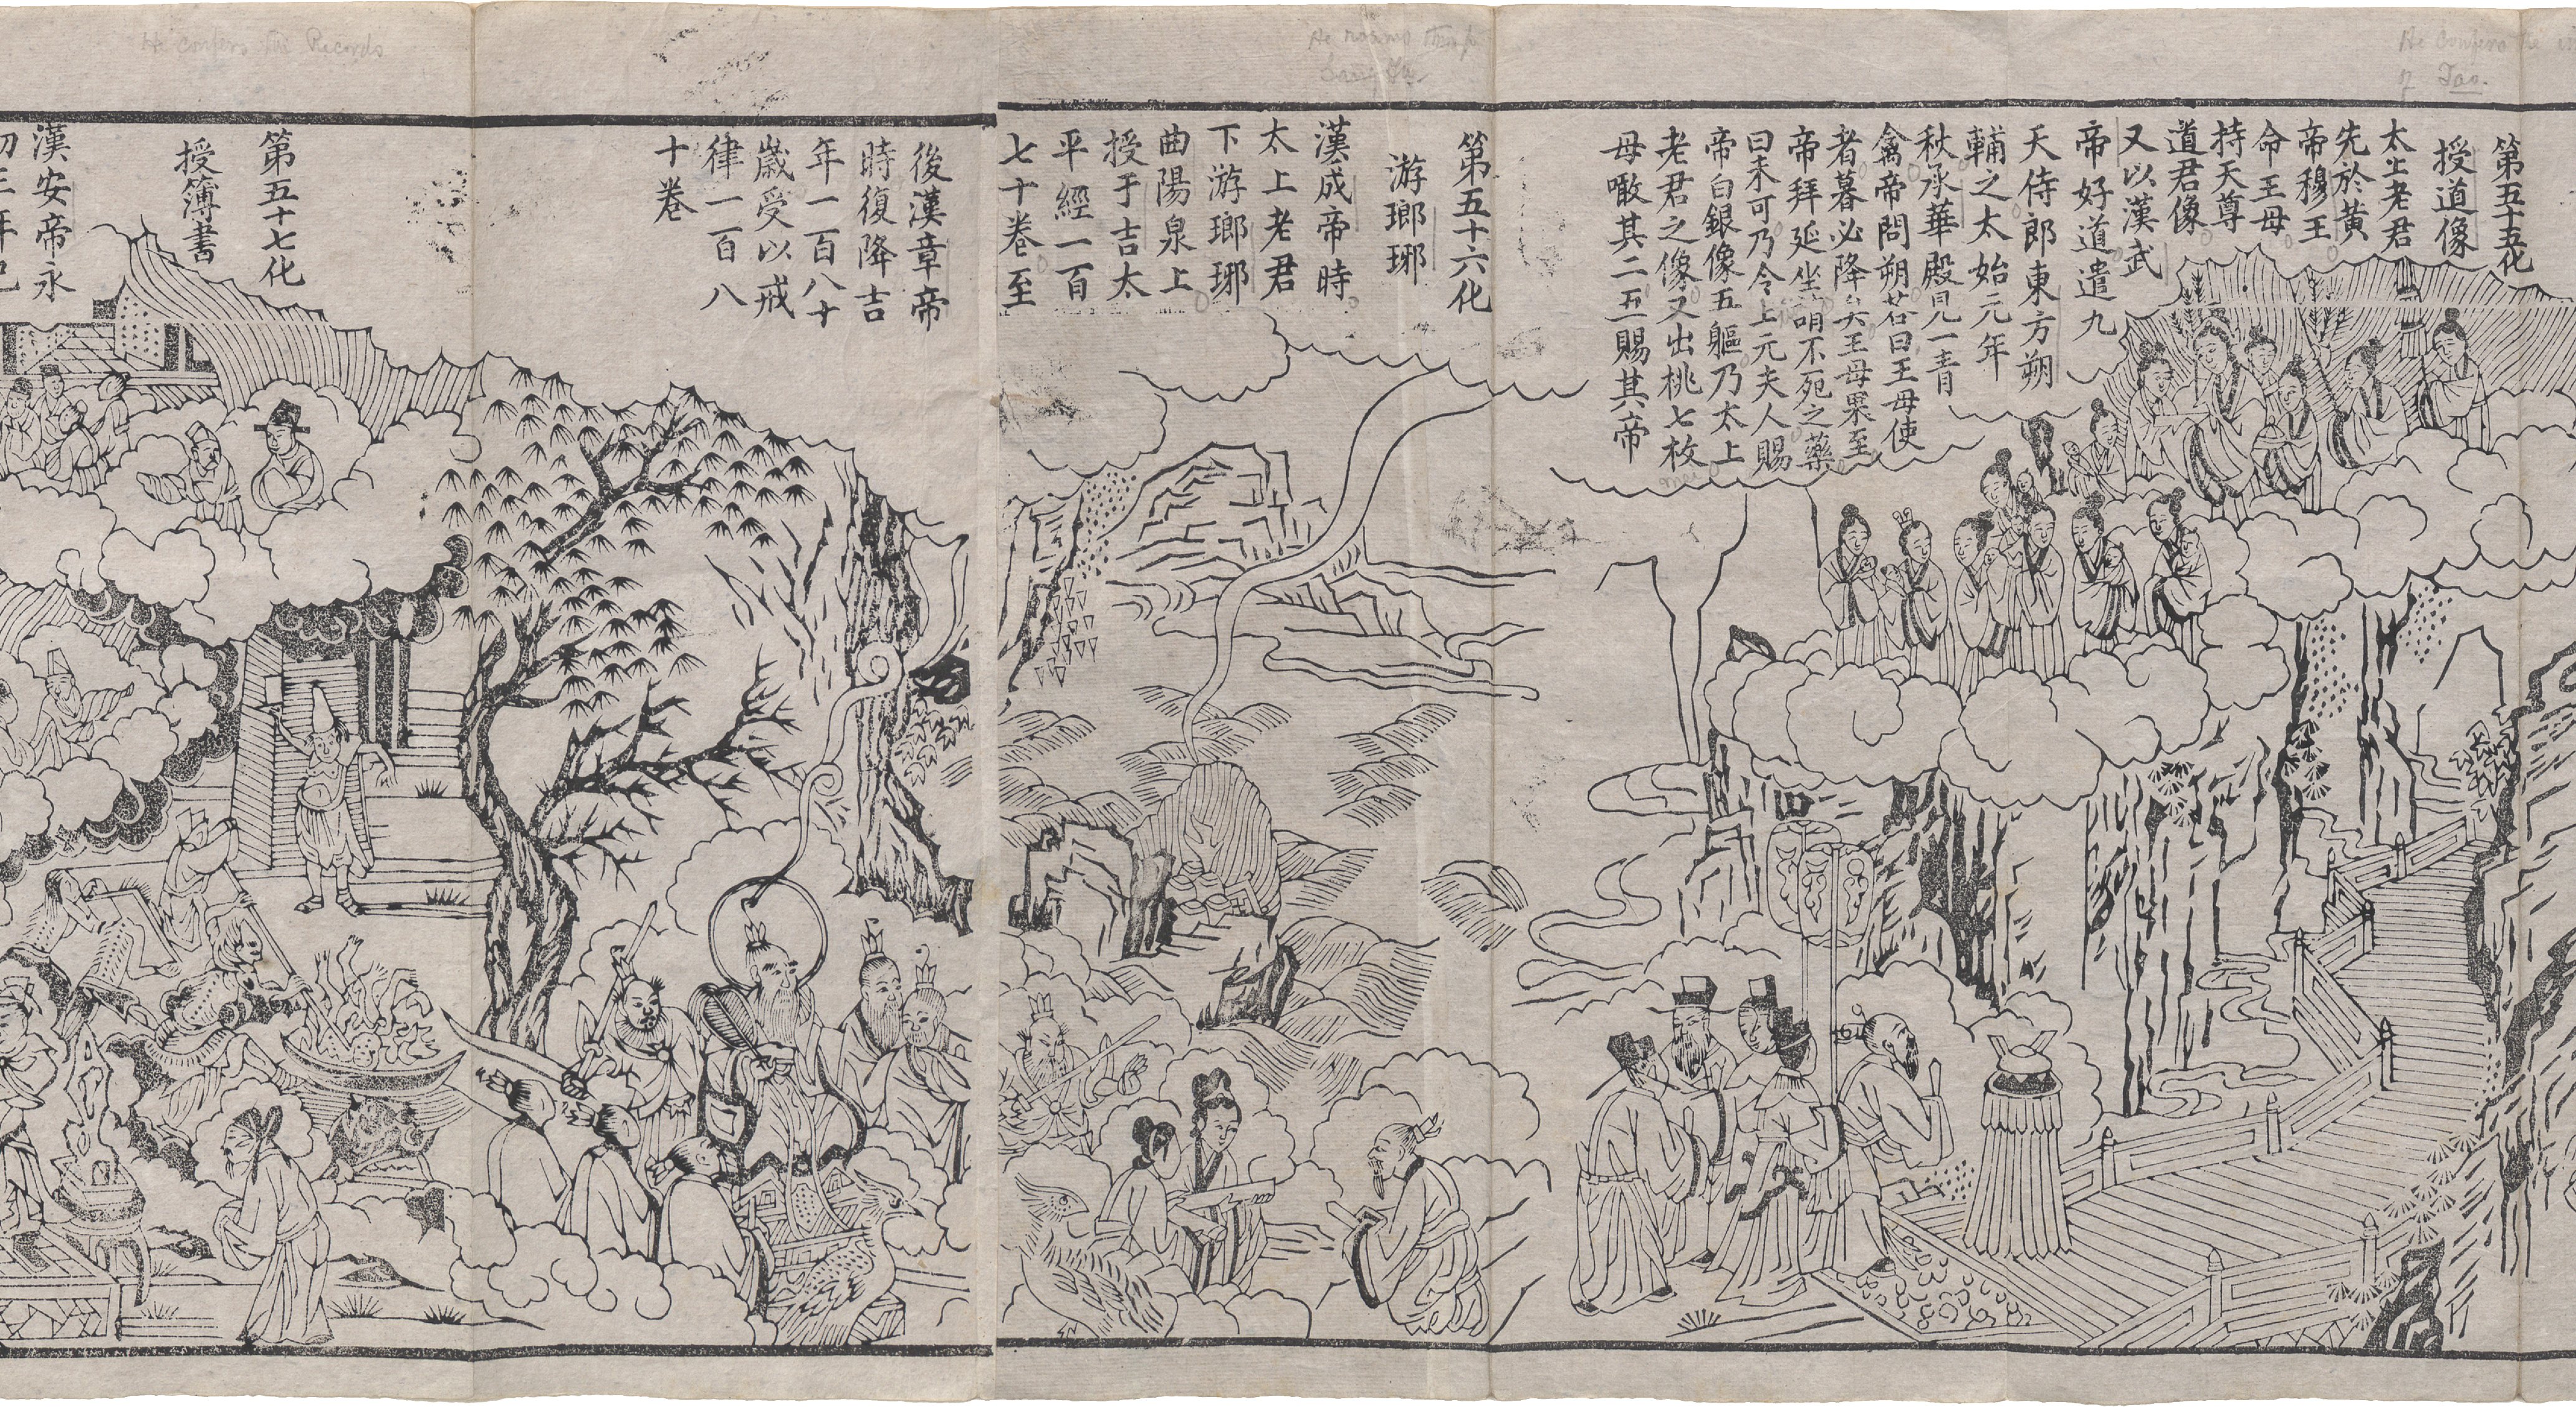 He confers the
of Tao.
第五十五化
授道像
太上老君
先於黃
帝穆王
命王母
持天尊
道君像
又以漢武
帝好道遣九
天侍郎東方朔
輔之太始元年
秋承華殿見一青
禽帝問朔荅曰王母使
者暮必降矣王母果至
帝拜延坐請不死之藥
曰未可乃令上元夫人賜
帝白銀像五軀乃太上
老君之像又出桃七枚
母噉其二五賜其帝
He roams through
Lang Ya
第五十六化
游瑯琊
漢成帝時
太上老君
下游瑯琊
曲陽泉上
授于吉太
平經一百
七十卷至
後漢章帝
時復降吉
年一百八十
歲受以戒
律一百八
十卷
He confers the Records
第五十七化
授簿書
漢安帝永
初三年